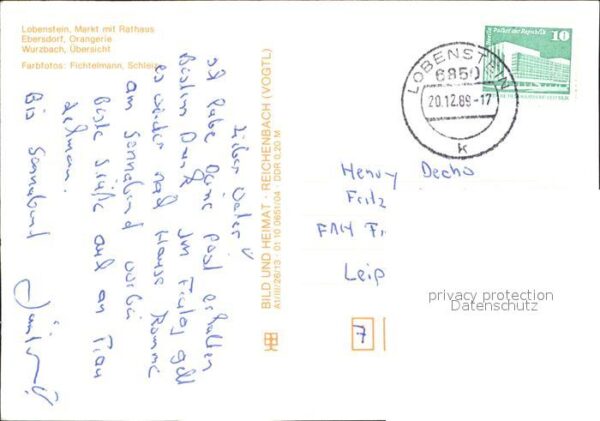 Lobenstein, Markt mit Rathaus
Ebersdorf, Orangerie
Wurzbach, Übersicht
Farbfotos: Fichtelmann, Schleiz
Lieber
ich habe Deine Post erhalten
Besten Dank Im Freitag geht
es wieder nach Hause komme
am Sonnabend vorbei
Beste Grüße auch an Frau
Bis Sonnabend
BILD UND HEIMAT · REICHENBACH (VOGTL)
A1/III/26/13 · 01 10 0651/04 · DDR 0,20 M
Palast der Republik 10
LOBENSTEIN
6850
20.12.89-17
k
Henry
Fritz
Leip
7
privacy protection
Datenschutz